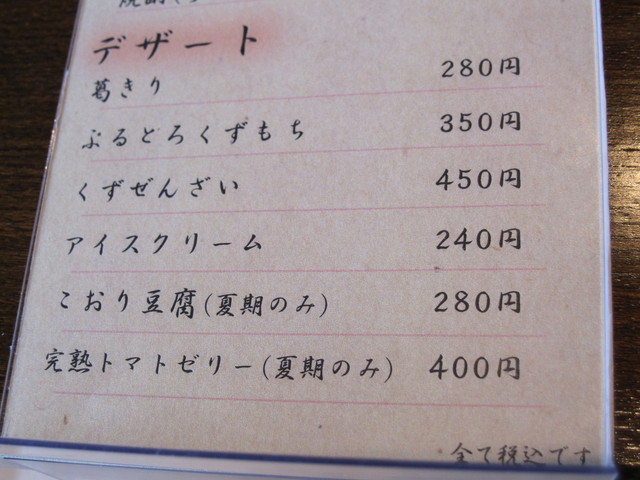 デザート
葛きり 280円
ぷるとろくずもち 350円
くずぜんざい 450円
アイスクリーム 240円
こおり豆腐(夏期のみ) 280円
完熟トマトゼリー(夏期のみ) 400円
全て税込です